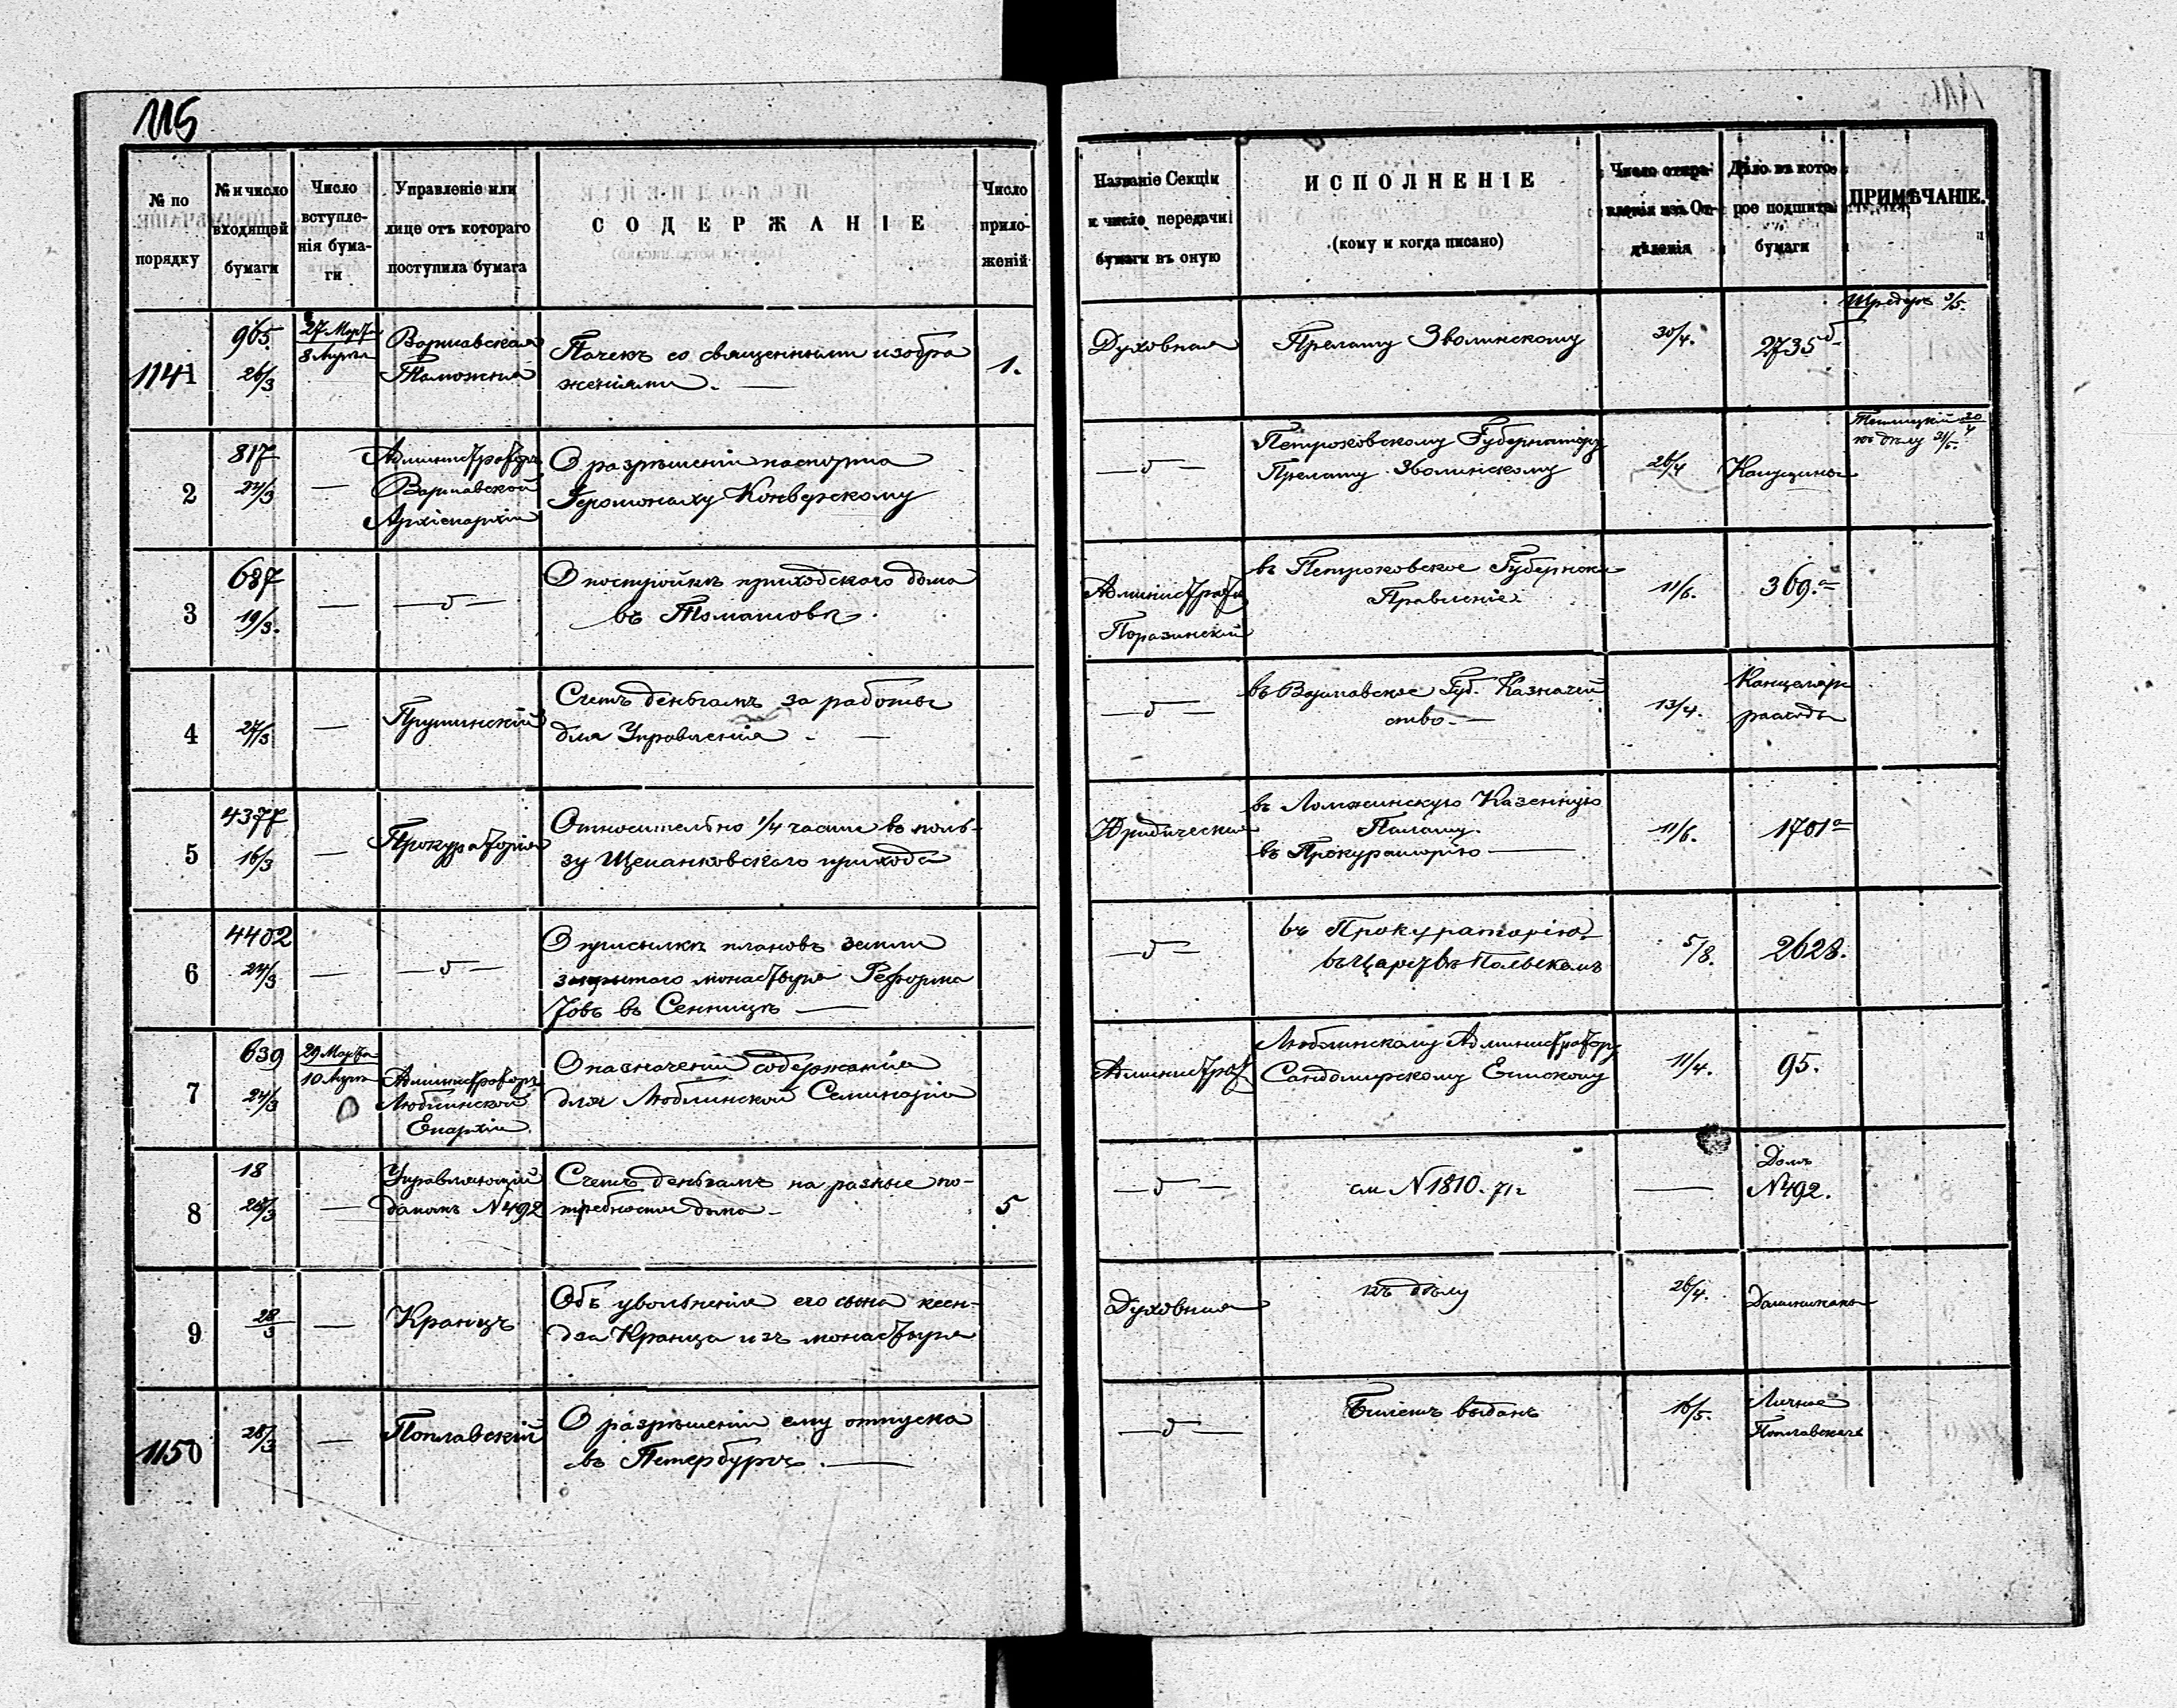 115
№ по порядку
№ и число входящей бумаги
Число вступле-нія бума-ги
Управленіе или лице отъ котораго поступила бумага
СОДЕРЖАНІЕ
Число прило-женій
Названіе Секціи и число передачи бумаги въ оную
ИСПОЛНЕНІЕ
(кому и когда писано)
Число отпра-вленія изъ От-дѣленія
Дѣло въ кото-рое подшиты бумаги
ПРИМѢЧАНІЕ.
1141
965
26/3
27 Марта
8 Апрѣля
Варшавская
Таможня
Пачекъ со священными изобра
женіями. —
1.
Духовная
Прелату Зволинскому
30/4.
2735 б
3/5.
2
817
24/3
—
Администраторъ
Варшавской
Архіепархіи
О разрѣшеніи паспорта
Іеромонаху Конверскому
— „ —
Петроковскому Губернатору
Прелату Зволинскому
26/4
Капуцины
20/4
къ дѣлу 31/5.
3
687
19/3.
—
— „ —
О постройкѣ приходскаго дома
въ Томашовѣ.
Администрат
Поразинскій
въ Петроковское Губернское
Правленіе
11/6.
369. а
4
27/3
—
Прушинскій
Счетъ деньгамъ за работы
для Управленія. —
— „ —
въ Варшавское Губ. Казначей
ство. —
13/4.
Канцеляр
расходы
5
4377
16/3
—
Прокураторія
Относительно 1/4 части въ поль-
зу Щепанковскаго прихода
Юридическая
въ Ломжинскую Казенную
Палату.
въ Прокураторію —
11/6.
1701 а
6
4402
24/3
—
— „ —
О присылкѣ плановъ земли
закрытаго монастыря Реформа
товъ въ Сенницѣ —
— „ —
въ Прокураторію
въ Царствѣ Польскомъ
5/8.
2628.
7
639
24/3
29 Марта
10 Апрѣ
Администраторъ
Люблинской
Епархіи
О назначеніи содержанія
для Люблинской Семинаріи
Администрат
Люблинскому Администратору
Сандомирскому Епископу
11/4.
95.
8
18
28/3
—
Управляющій
домомъ №492
Счетъ деньгамъ на разные по-
требности дома —
5
— „ —
см №1810. 71 г
—
Домъ
№492.
9
28/3
—
Кранцъ
Объ увольненіи его сына ксен-
дза Кранца изъ монастыря
Духовная
къ дѣлу
26/4.
Доминикане
1150
28/3
—
Поплавскій
О разрѣшеніи ему отпуска
въ Петербургъ. —
— „ —
Билетъ выданъ
16/5.
Личное
Поплавскаго